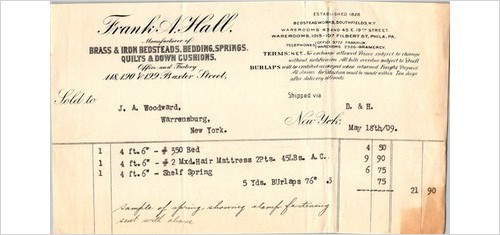 Frank A. Hall.
Manufacturer of
BRASS & IRON BEDSTEADS, BEDDING, SPRINGS,
QUILTS & DOWN CUSHIONS.
Office and Factory
118, 120 & 122 Baxter Street,
ESTABLISHED 1828
BEDSTEAD WORKS, SOUTHFIELDS, N.Y.
WAREROOMS 43 AND 45 E. 19TH STREET
WAREROOMS, 1015-1017 FILBERT ST., PHILA, PA.
TELEPHONES OFFICE 3772 FRANKLIN
WAREROOMS GRAMERCY.
TERMS: NET. No exchange allowed. Prices subject to change
without notification. All bills overdue subject to Draft
BURLAPS will be credited as charged when returned Freight Prepaid
All claims for deduction must be made within Ten days
after delivery of goods.
Sold to
J. A. Woodward,
Warrensburg,
New York.
Shipped via
D. & H.
New York
May 18th/09.
1 4 ft.6" - # 350 Bed 4 50
1 4 ft.6" - # 2 Mxd.Hair Mattress 2Pts. 45Lbs. A.C. 9 90
1 4 ft.6" - Shelf Spring 6 75
5 Yds. Burlaps 76" .5 75
21 90
sample of spring showing clamp fastening
sent with above